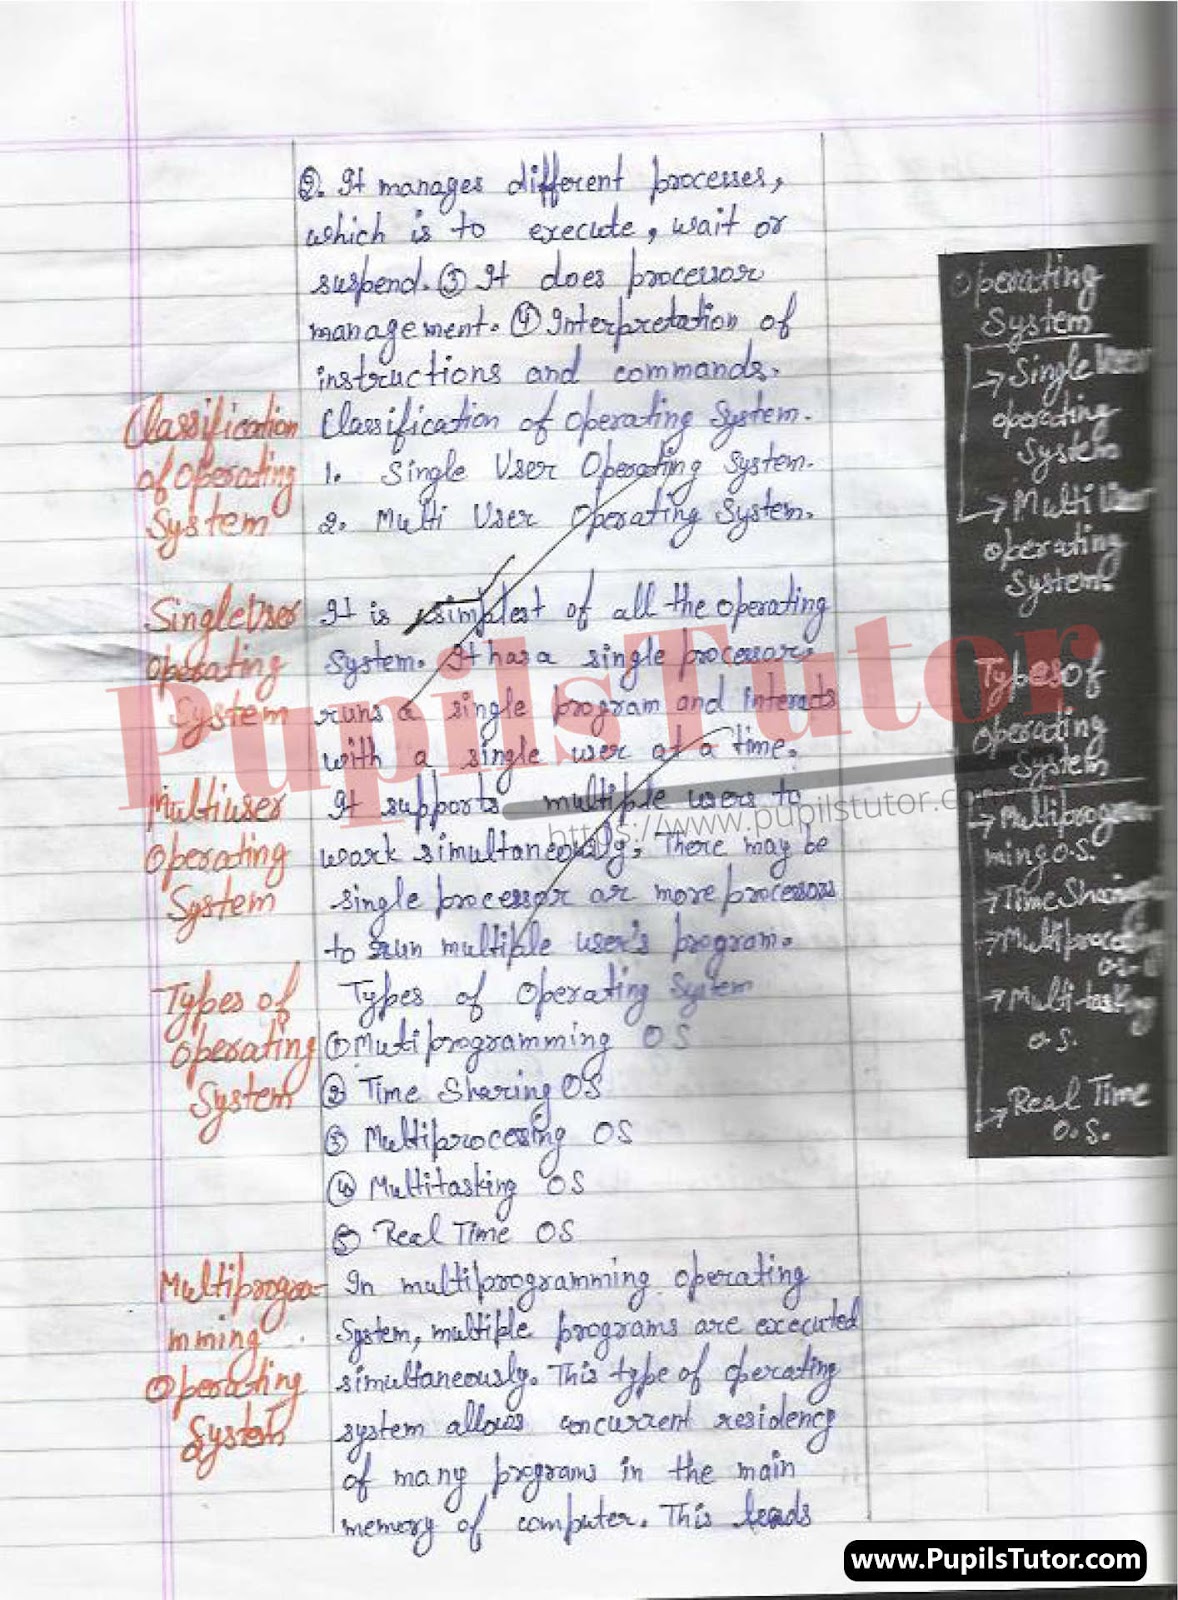 ②. It manages different processes,
which is to execute, wait or
suspend. ③ It does processor
management. ④ Interpretation of
instructions and commands.
Classification
of Operating
System
Classification of Operating System.
1. Single User Operating System.
2. Multi User Operating System.
Single User
Operating
System
It is simplest of all the operating
System. It has a single processor,
runs a single program and interacts
with a single user at a time.
Multiuser
Operating
System
It supports multiple users to
work simultaneously. There may be
single processor or more processors
to run multiple user's program.
Types of
Operating
System
Types of Operating System
① Multiprogramming OS
② Time Sharing OS
③ Multiprocessing OS
④ Multitasking OS
⑤ Real Time OS
Multiprogra-
mming
Operating
System
In multiprogramming operating
System, multiple programs are executed
simultaneously. This type of operating
system allows concurrent residency
of many programs in the main
memory of computer. This leads
Operating
System
→ Single User
operating
System
→ Multi User
operating
System.
Types of
operating
System
→ Multiprogram
ming O.S.
→ Time Sharing
→ Multiprocessing
→ Multi-tasking
O.S.
→ Real Time
O.S.
PupilsTutor
https://www.pupilstutor.com
www.PupilsTutor.com